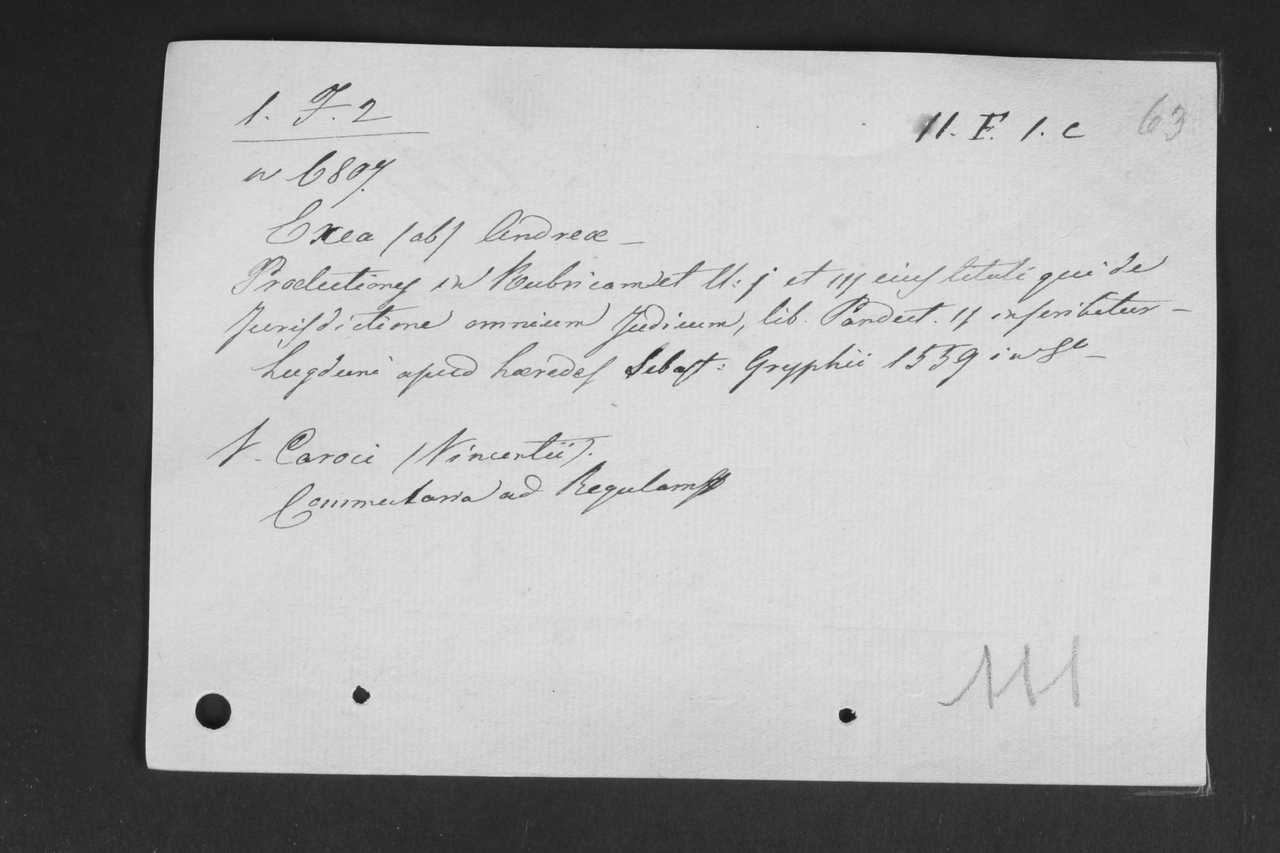 1. F. 2
11. F. 1. c
63
n 6807.
Exea (ab) Andreæ _
Prælectiones in Rubricam et ll: j et iij eius tituli qui de
Jurisdictione omnium Judicum, lib. Pandect. ij inscribitur _
Lugduni apud hæredes Sebast: Gryphii 1559 in 8º _
V. Caroci (Vincentii).
Commentaria ad Regulam
111